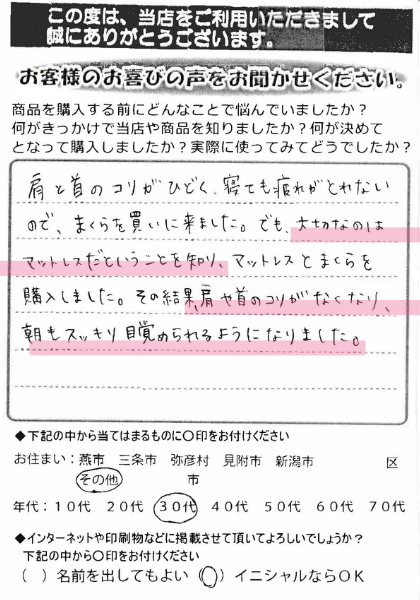 この度は、当店をご利用いただきまして
誠にありがとうございます。
お客様のお喜びの声をお聞かせください。
商品を購入する前にどんなことで悩んでいましたか？
何がきっかけで当店や商品を知りましたか？何が決めて
となって購入しましたか？実際に使ってみてどうでしたか？
肩と首のコリがひどく、寝ても疲れがとれない
ので、まくらを買いに来ました。でも、大切なのは
マットレスだということを知り、マットレスとまくらを
購入しました。その結果、肩や首のコリがなくなり、
朝もスッキリ目覚められるようになりました。
◆下記の中から当てはまるものに〇印をお付けください
お住まい：燕市 三条市 弥彦村 見附市 新潟市 区
その他 市
年代：１０代 ２０代 ３０代 ４０代 ５０代 ６０代 ７０代
◆インターネットや印刷物などに掲載させて頂いてよろしいでしょうか？
下記の中から〇印をお付けください
（ ）名前を出してもよい（〇）イニシャルならＯＫ